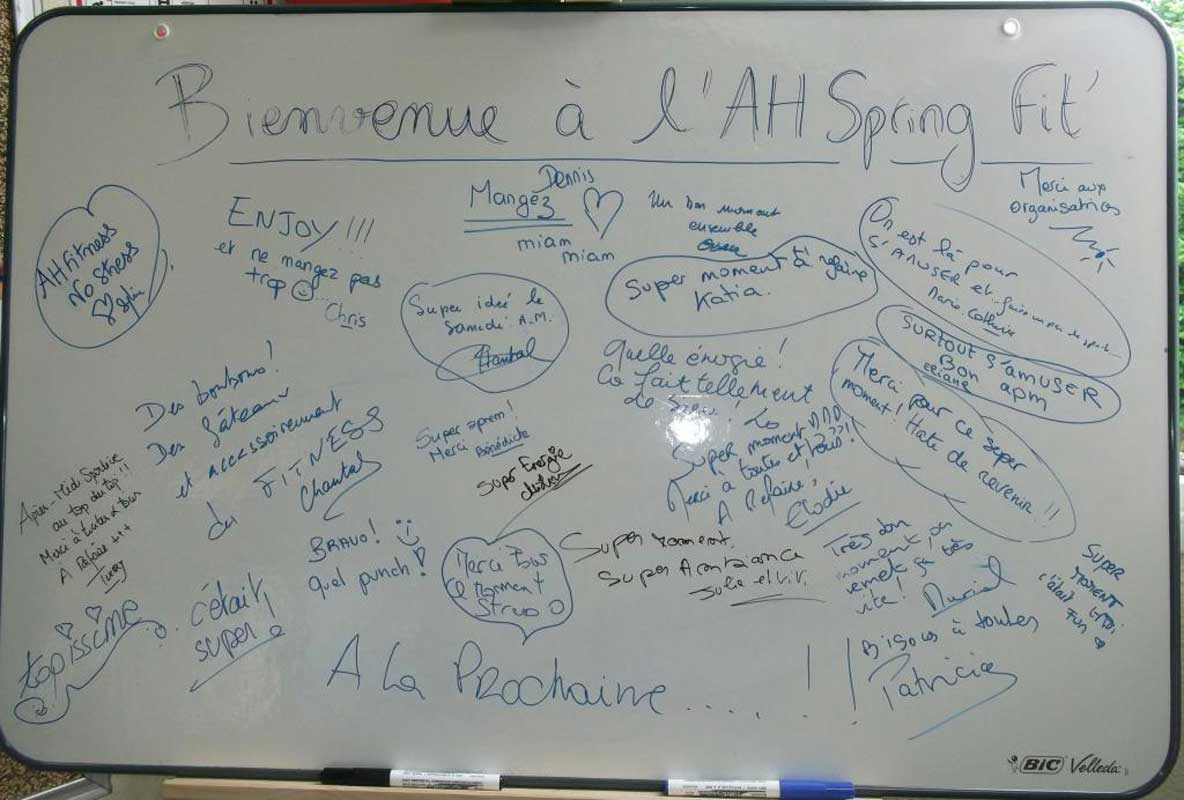 Bienvenue à l'AH Spring Fit'
AH Fitness
No Stress
ENJOY!!!
et ne mangez pas
trop
Chris
Dennis
Mangez
miam
miam
Un bon moment
ensemble
Merci aux
organisatrices
On est là pour
s'AMUSER et faire un peu de sport...
Marie Catherine
Super idée le
Samedi A.M.
Chantal
Super moment à refaire
Katia.
SURTOUT S'AMUSER
Bon apm
Merci pour ce super
moment! Hate de revenir!!
Quelle énergie!
Ca fait tellement
de bien!
Des bonbons!
Des gâteaux
et accessoirement
du FITNESS
Chantal
Super aprem!
Merci Bénédicte
Super Energie
Super moment
Merci à toutes et tous!
A Refaire,
Elodie
Apres-Midi Sportive
au top du top!!
Merci à toutes & tous
A Refaire +++
BRAVO!
quel punch!
Merci Tous
le moment
Super moment.
Super Ambiance
Julie et Vivi
Très bon
moment, on
remet ça très
vite! Muriel
SUPER
MOMENT
c'était
Fun
topissime
c'était
super!
Bisous à toutes
Patricia
A La Prochaine.....!!
BIC Velleda